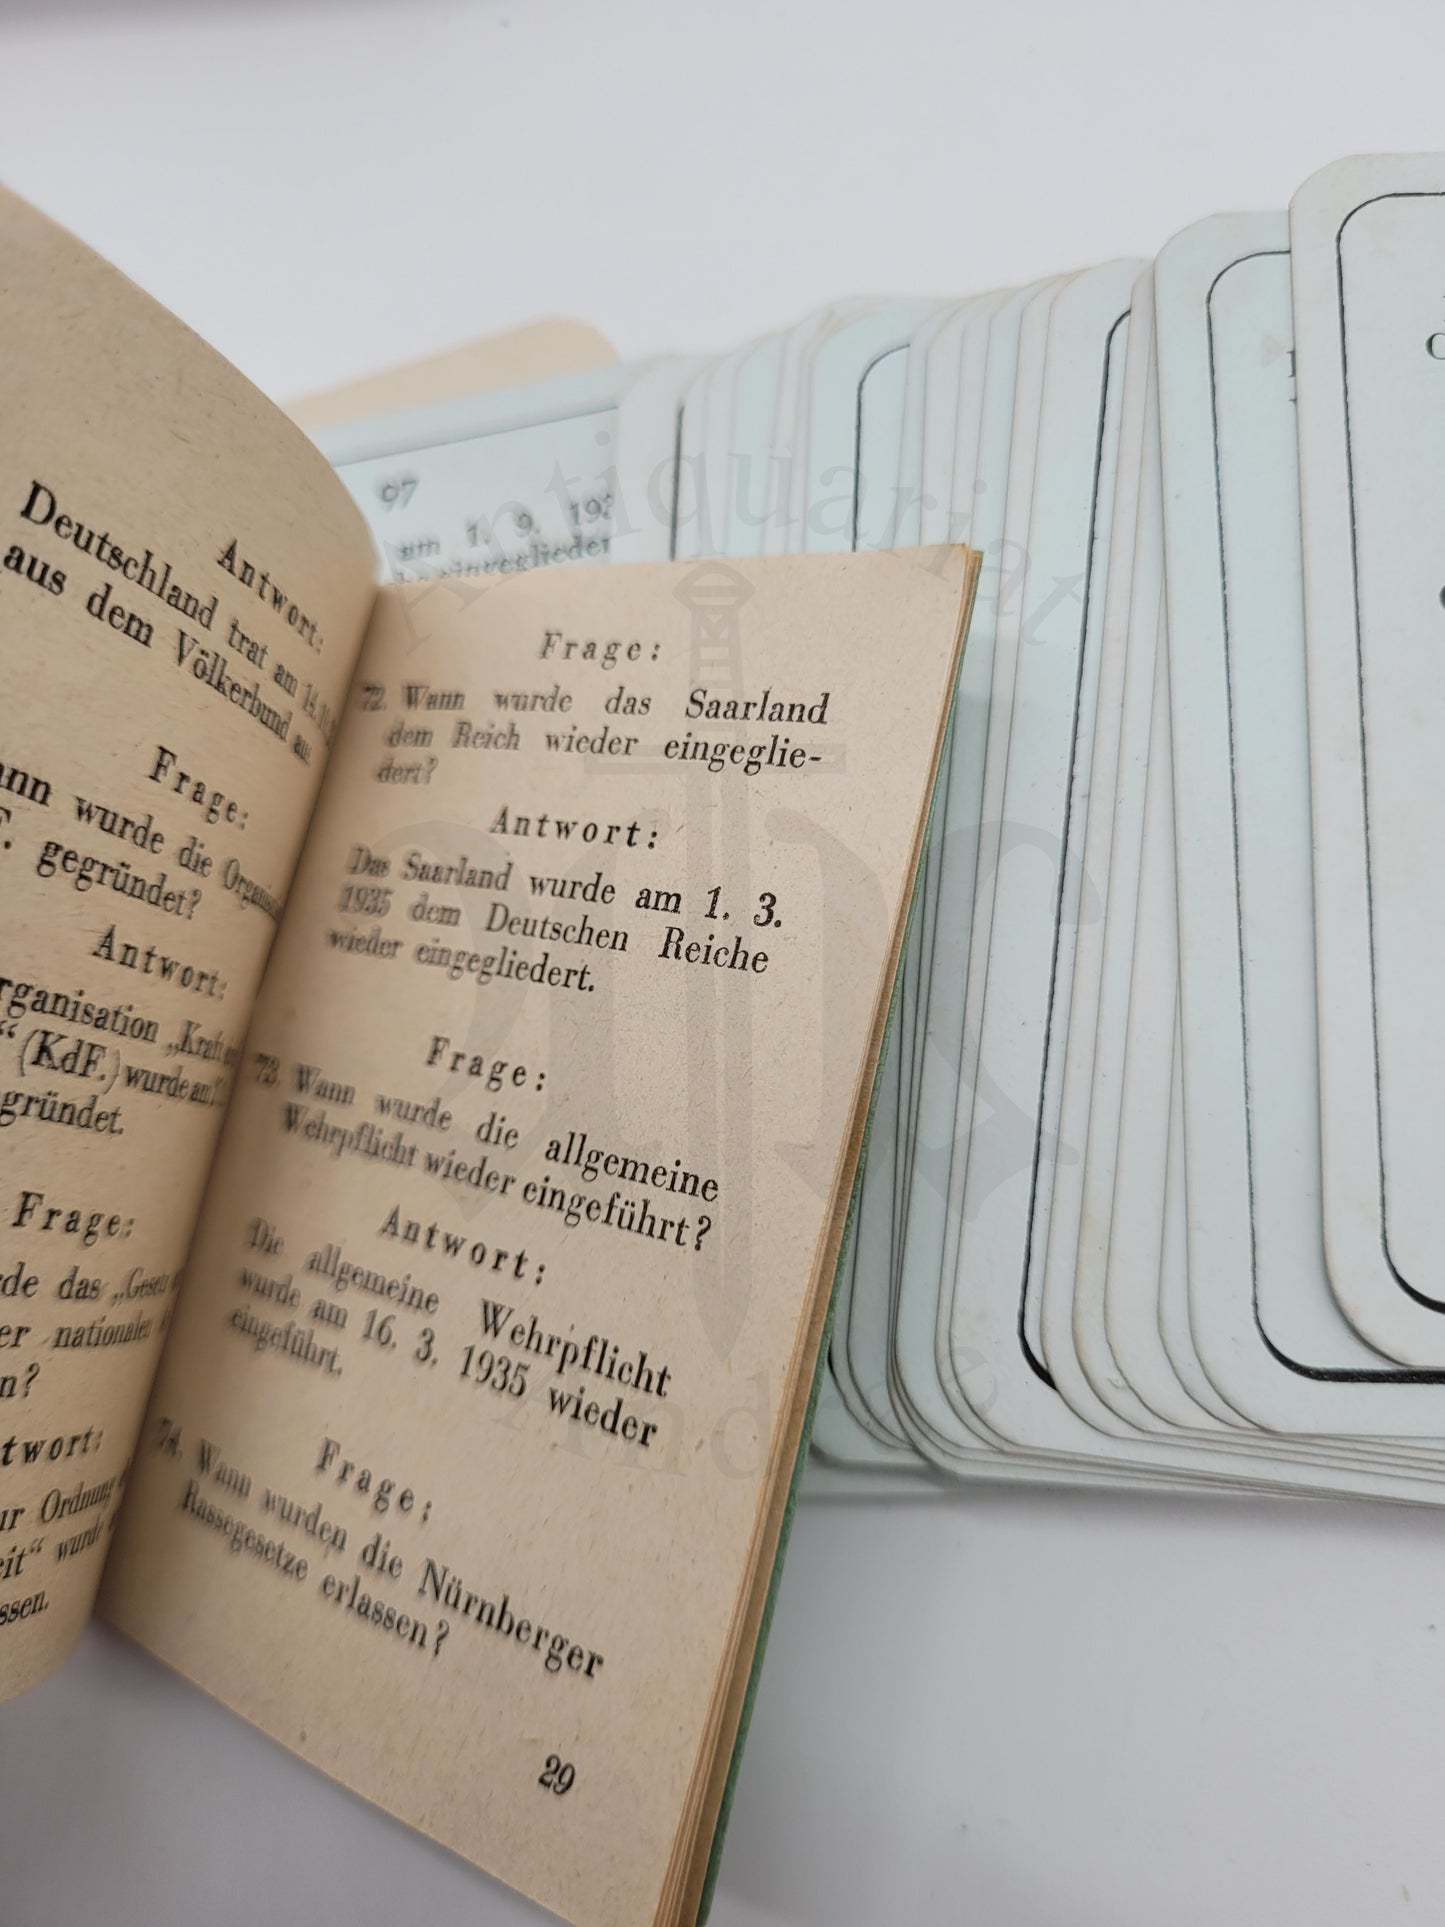 Antwort:
Deutschland trat am 14.
aus dem Völkerbund aus.
Frage:
wurde die
gegründet?
Antwort:
„Kraft
“ (KdF.) wurde am
Frage:
das „Gesetz
nationalen
ur Ordnung
wurde
Frage:
72. Wann wurde das Saarland
dem Reich wieder eingeglie-
dert?
Antwort:
Das Saarland wurde am 1. 3.
1935 dem Deutschen Reiche
wieder eingegliedert.
Frage:
73. Wann wurde die allgemeine
Wehrpflicht wieder eingeführt?
Antwort:
Die allgemeine Wehrpflicht
wurde am 16. 3. 1935 wieder
eingeführt.
Frage:
74. Wann wurden die Nürnberger
Rassegesetze erlassen?
29
97
am 1. 9. 193
Antiquariat
Andree